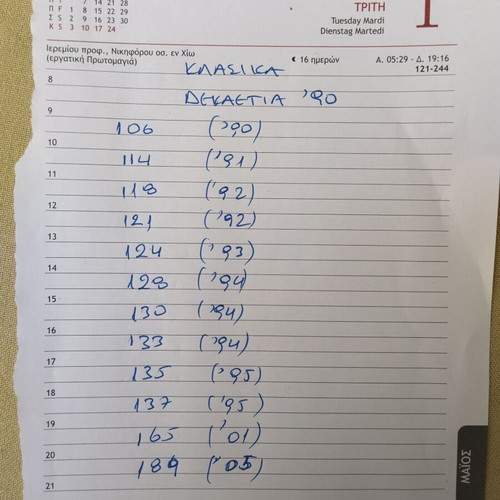 7 14 21 28
Π F 1 8 15 22 29
Σ S 2 9 16 23 30
Κ S 3 10 17 24
1
ΤΡΙΤΗ
Tuesday Mardi
Dienstag Martedi
Ιερεμίου προφ., Νικηφόρου οσ. εν Χίω
(εργατική Πρωτομαγιά)
16 ημερών
Α. 05:29 - Δ. 19:16
121-244
ΚΛΑΣΙΚΑ
8
ΔΕΚΑΕΤΙΑ '90
9
106 ('90)
10
114 ('91)
11
118 ('92)
12
121 ('92)
13
124 ('93)
14
128 ('94)
15
130 ('94)
16
133 ('94)
17
135 ('95)
18
137 ('95)
19
165 ('01)
20
184 ('05)
21
ΜΑΪΟΣ